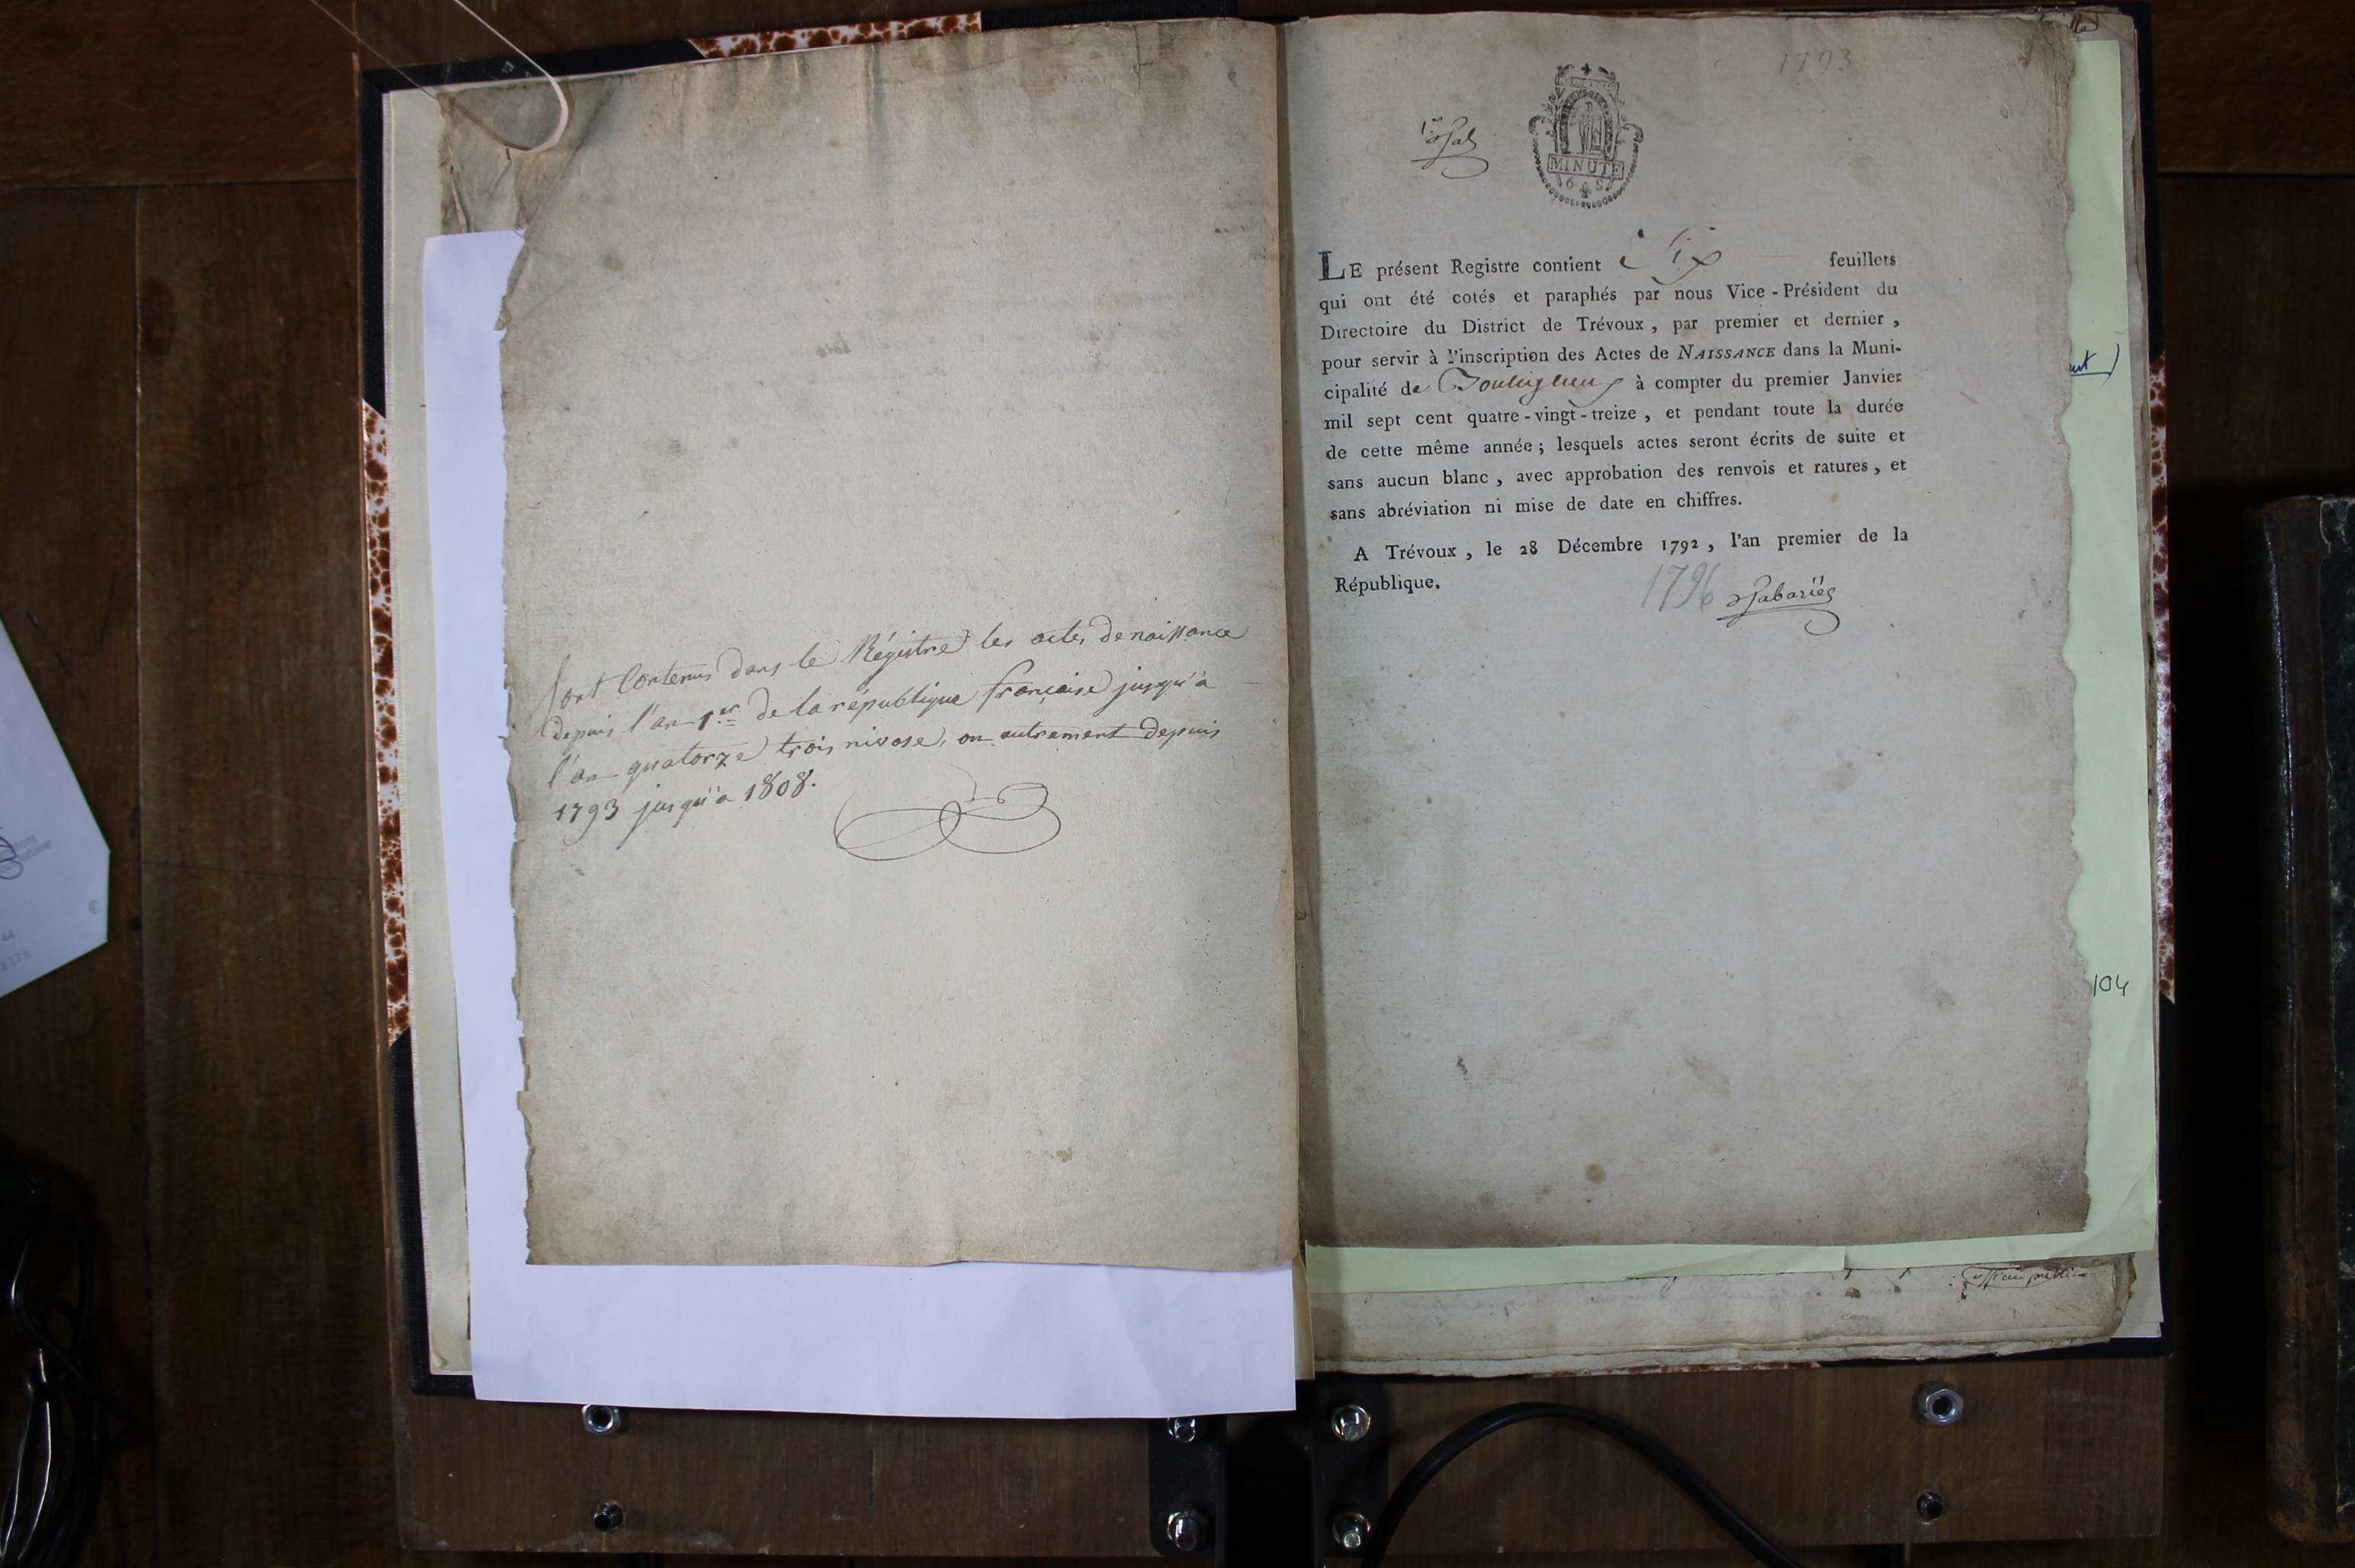 Sont Contenus dans le Régistre les actes de naissance
depuis l'an 1.er de la république française jusqu'à
l'an quatorze trois nivose, ou autrement depuis
1793 jusqu'à 1808.
1793
MINUTE
LE présent Registre contient Six feuillets
qui ont été cotés et paraphés par nous Vice-Président du
Directoire du District de Trévoux, par premier et dernier,
pour servir à l'inscription des Actes de NAISSANCE dans la Muni-
cipalité de à compter du premier Janvier
mil sept cent quatre-vingt-treize, et pendant toute la durée
de cette même année; lesquels actes seront écrits de suite et
sans aucun blanc, avec approbation des renvois et ratures, et
sans abréviation ni mise de date en chiffres.
A Trévoux, le 28 Décembre 1792, l'an premier de la
République.
1796
104